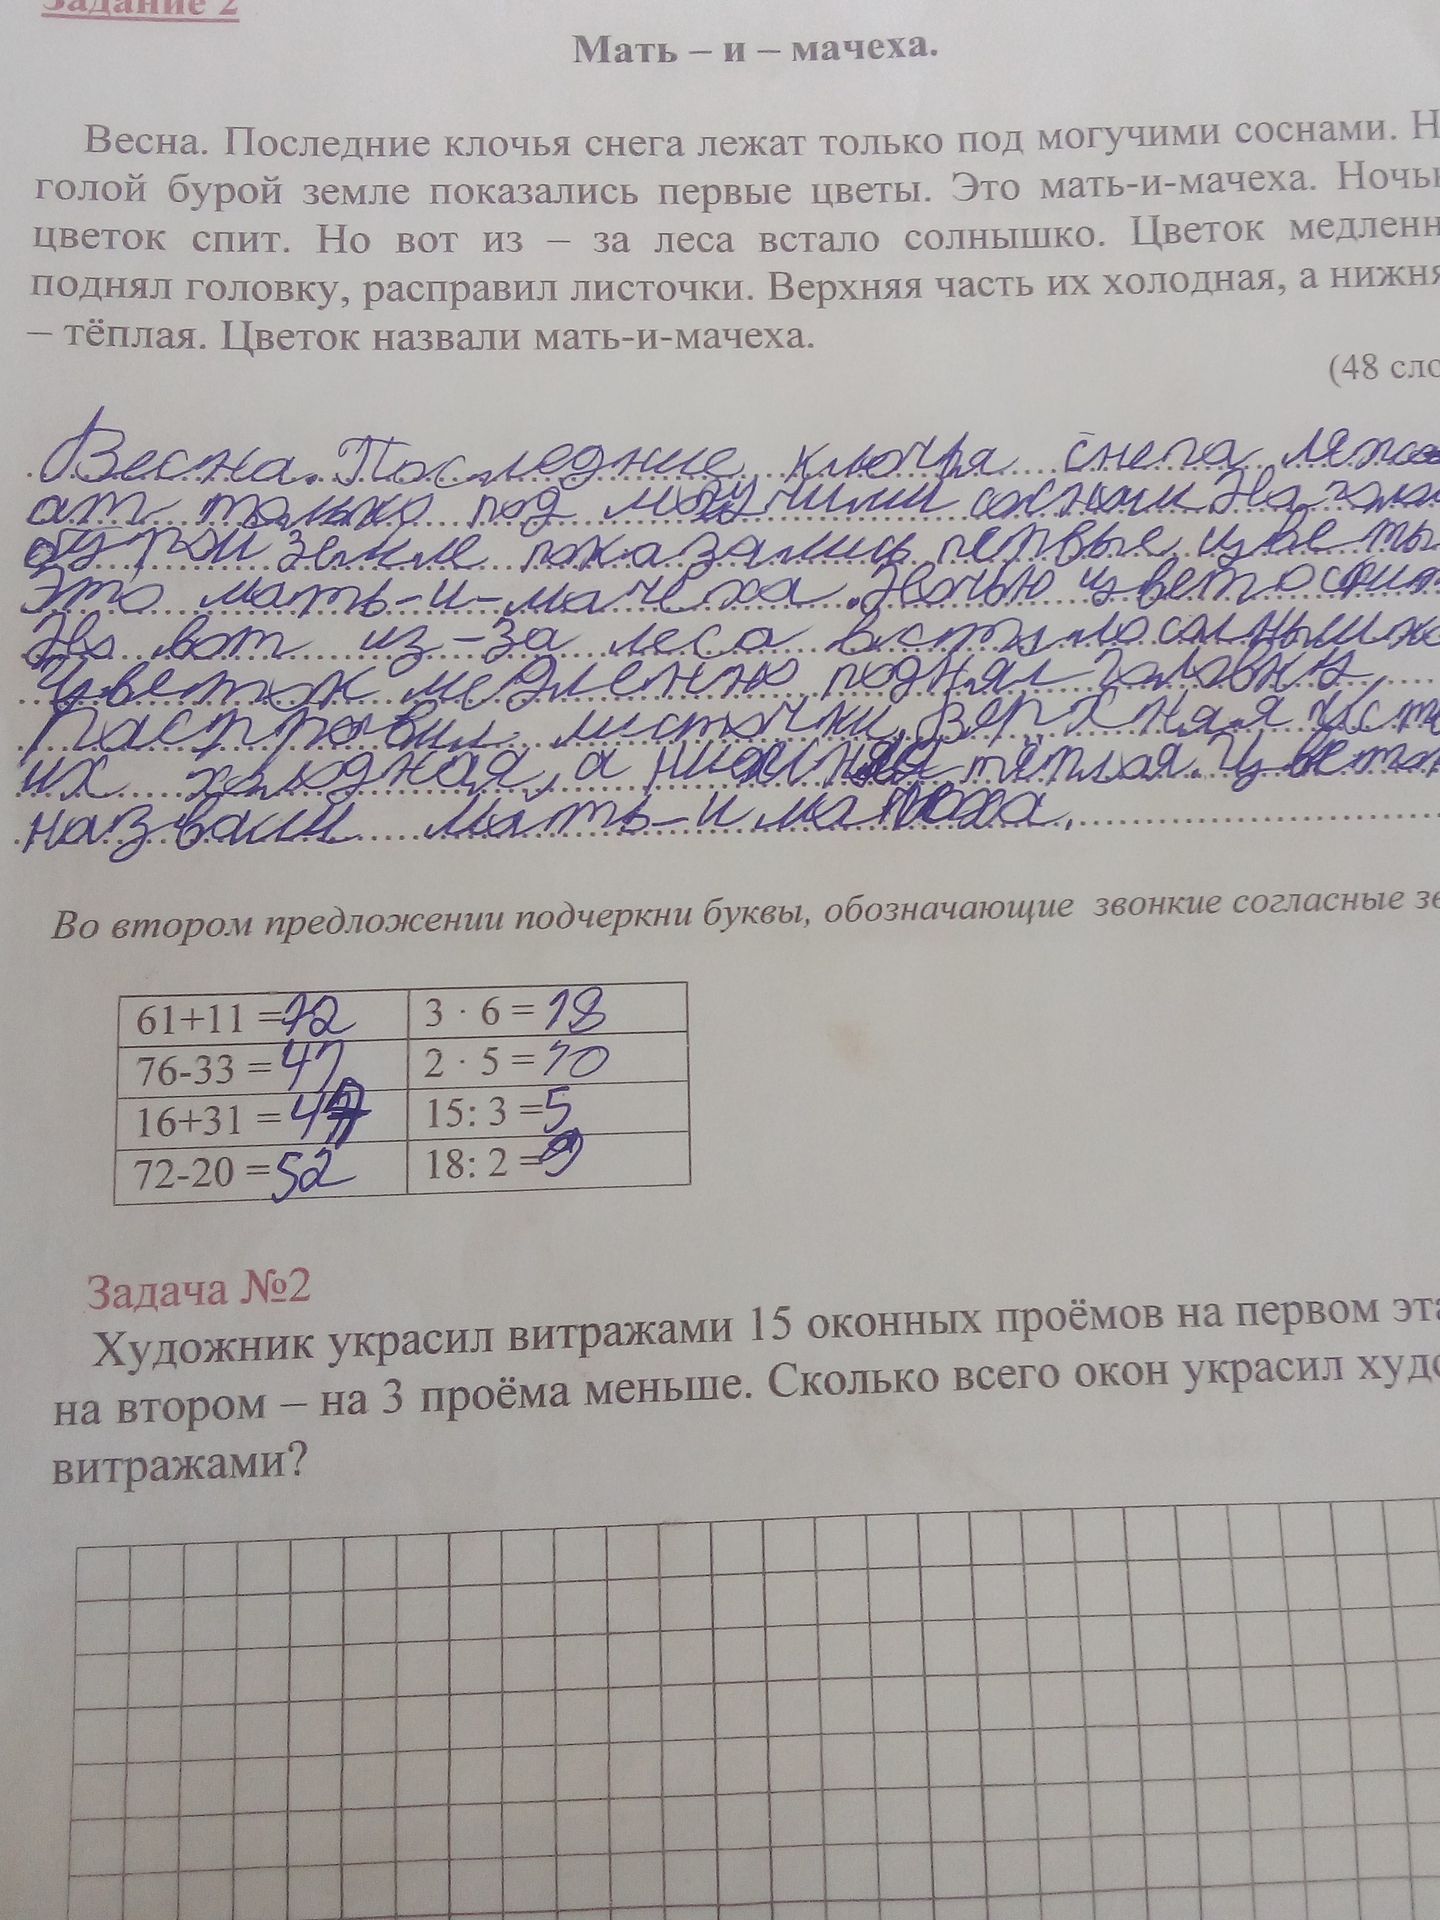 Задание 2
Мать – и – мачеха.
Весна. Последние клочья снега лежат только под могучими соснами. Н
голой бурой земле показались первые цветы. Это мать-и-мачеха. Ночь
цветок спит. Но вот из – за леса встало солнышко. Цветок медленн
поднял головку, расправил листочки. Верхняя часть их холодная, а нижня
– тёплая. Цветок назвали мать-и-мачеха.
(48 сло
Весна. Последние клочья снега ляж
ат только под могучими На
бурой земле показались первые цветы
Это мать-и-мачеха. Ночью
Но вот из-за леса
Цветок медленно поднял головку
листочки. Верхняя
их холодная, а тёплая. Цветок
назвали мать-и
Во втором предложении подчеркни буквы, обозначающие звонкие согласные зв
61+11 =72 3 · 6 =18
76-33 =47 2 · 5 =10
16+31 =47 15: 3 =5
72-20 =52 18: 2 =9
Задача №2
Художник украсил витражами 15 оконных проёмов на первом эта
на втором – на 3 проёма меньше. Сколько всего окон украсил худо
витражами?